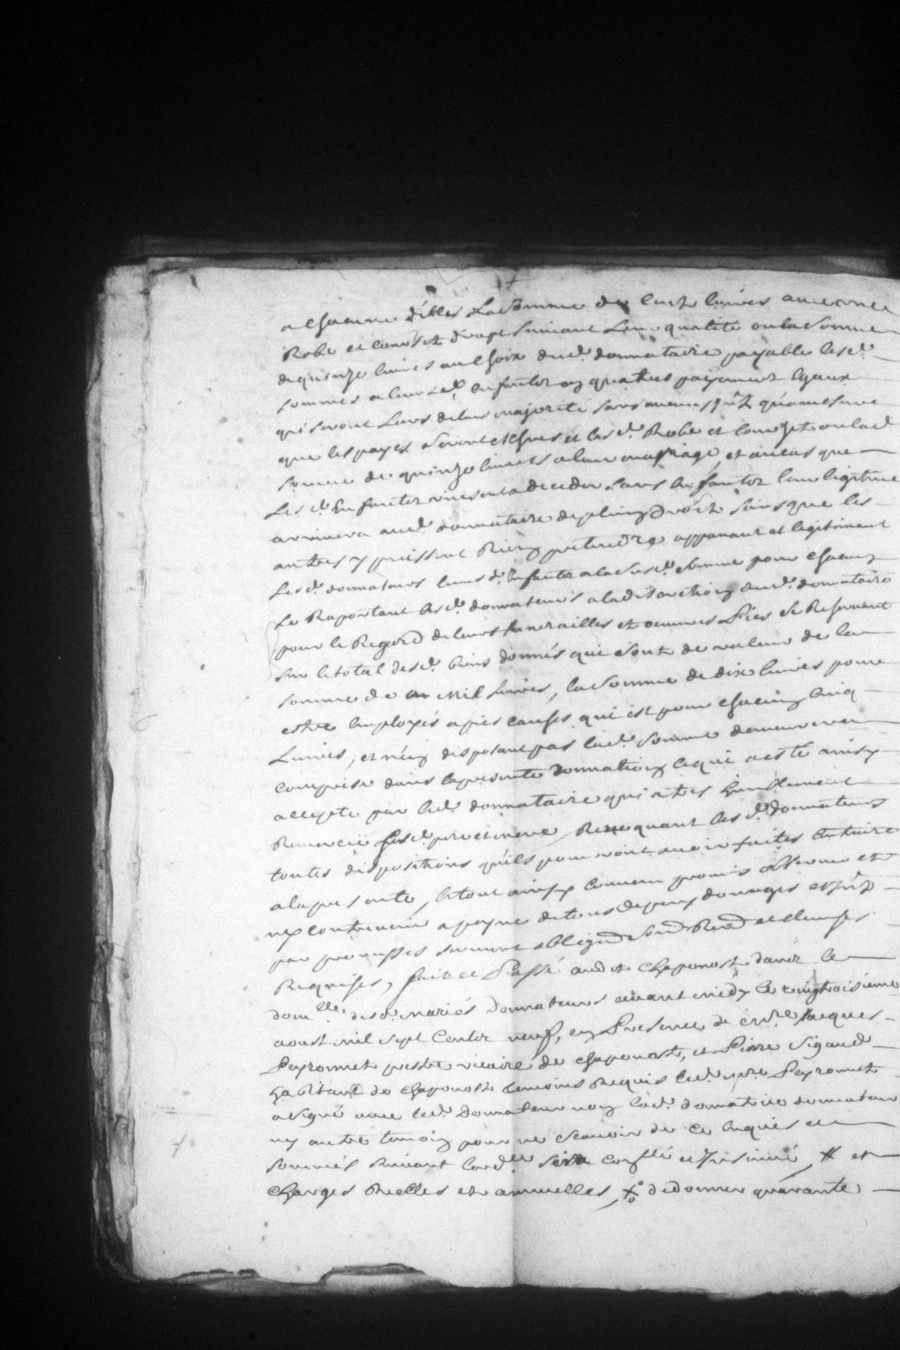 a chacune d'elles la somme de cent livres avec une
Robe et corset drapt suivant leur qualité ou la somme
de quinze livres au choix dud. donnataire payable lesd.
sommes a leursd. enfants en quattres payement égaux
qui seront lors de leur majorité sans aucun
que les payes seront escheus et lesd. Robe et corset ou lad.
somme de quinze livres a leur mariage, et au cas que
Lesd. Enfants vinsent a deceder sans enfants leur legitime
arrivera aud. donnataire de plein droit sans que les
autres y puissent Rien pretendre appanant et legitimant
Lesd. donnateurs leursd. Enfants a la susd. somme pour chacun
Le Raportant lesd. donnateurs a la discretion dud. donnataire
pour le Regard de leurs funerailles et oeuvres Pies se Reservant
sur le total desd. biens donnés qui sont de valeur de la
somme de mil livres, la somme de dix livres pour
estre employés a pies causes qui est pour chacun cinq
Livres, et n'en disposant pas lad. somme demeurera
comprise dans la presente donnation ce qui a esté ainsy
accepté par led. donnataire qui a tres humblement
Remercié sesd. pere et mere, Revoquant lesd. donnateurs
toutes dispositions qu'ils pourroient avoir faites contraire
a la presente, le tout ainsy convenu promis observer et
ny contrevenir a peyne de tous depens domages et
par promesses serment obligaons soumd Renond et clauses
Requises, fait et Passé audit chaponost dans le
domlle desd. mariés donnateurs avant midy le vingtroisieme
aoust mil sept Cents neuf, en Presence de mre Jacques
Peyronnet prestre vicaire de chaponost, et Pierre Sigaud
habitant de chaponost temoins Requis led. mre Peyronnet
a signé avec led. donnateur non lad. donnatrice donnataire
ny autre temoin pour ne scavoir de ce enquis et
sommés suivant lordce sera conllé et Insinué, et
charges reelles et annuelles, de donner quarante